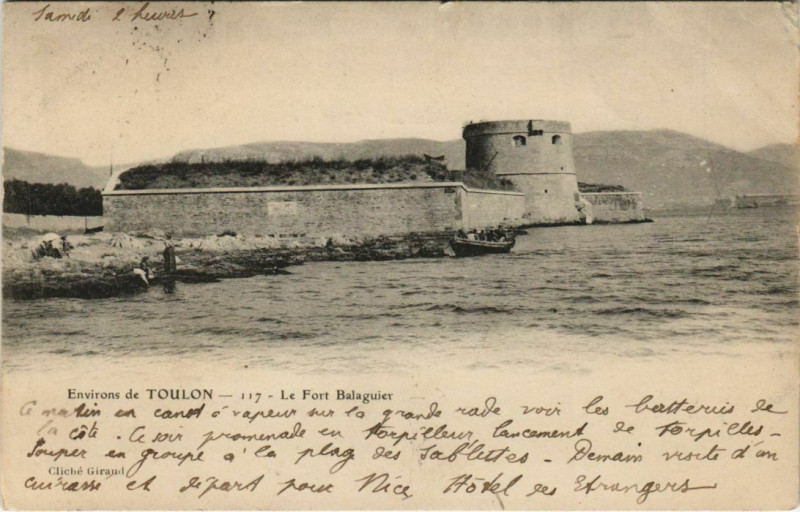 Samedi 2 heures
Environs de TOULON — 117 - Le Fort Balaguier
Ce matin en canot à vapeur sur la grande rade voir les batteries de
la côte. Ce soir promenade en torpilleur lancement de torpilles -
Souper en groupe à la plag des Sablettes - Demain visite d'un
Cliché Giraud
cuirassé et départ pour Nice Hôtel des Etrangers